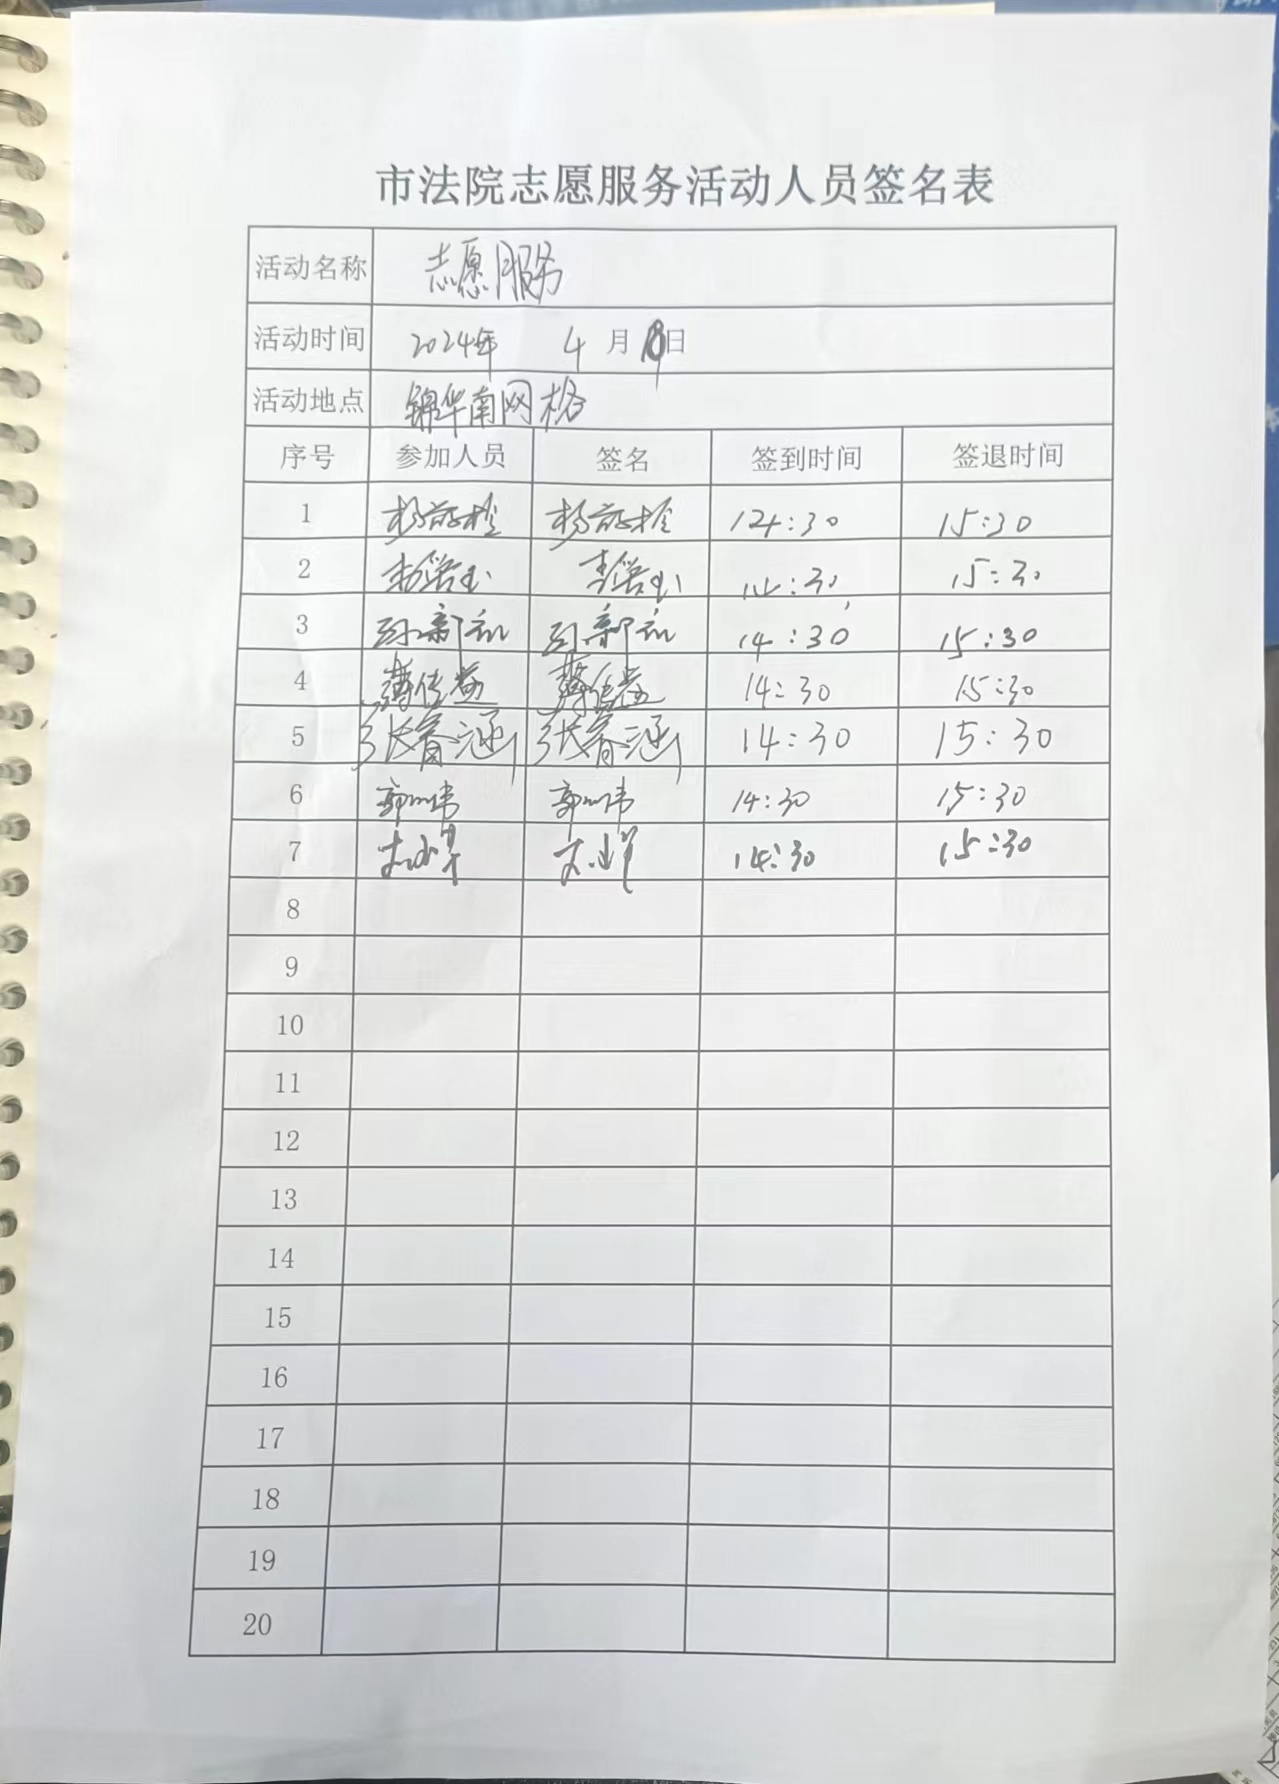 市法院志愿服务活动人员签名表
活动名称 志愿服务
活动时间 2024年 4 月 日
活动地点 锦华南网格
序号 参加人员 签名 签到时间 签退时间
1 14:30 15:30
2 14:30 15:30
3 14:30 15:30
4 14:30 15:30
5 张春涵 张春涵 14:30 15:30
6 14:30 15:30
7 14:30 15:30
8
9
10
11
12
13
14
15
16
17
18
19
20